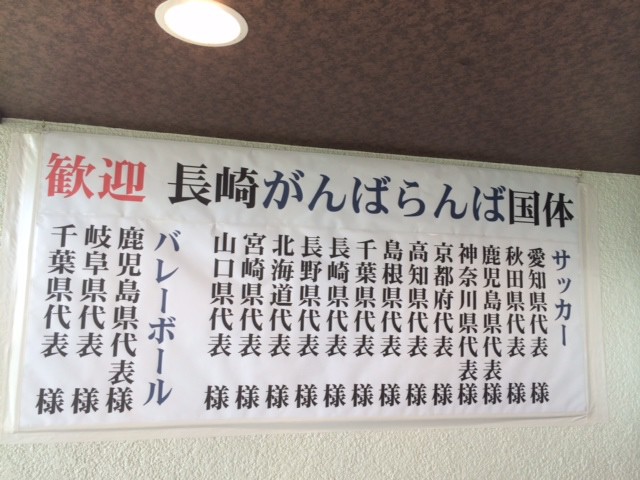 歓迎 長崎がんばらんば国体
サッカー
愛知県代表 様
秋田県代表 様
鹿児島県代表 様
神奈川県代表 様
京都府代表 様
高知県代表 様
島根県代表 様
千葉県代表 様
長崎県代表 様
長野県代表 様
北海道代表 様
宮崎県代表 様
山口県代表 様
バレーボール
鹿児島県代表様
岐阜県代表 様
千葉県代表 様